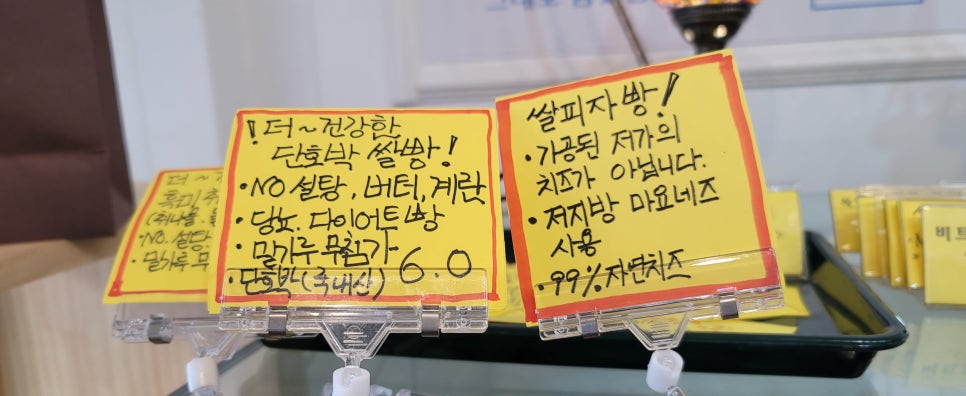 더~
흑미
NO. 설탕
밀가루 무
! 더~건강한
단호박 쌀빵!
·NO 설탕, 버터, 계란
·당뇨. 다이어트빵
·밀가루 무첨가
·단호박(국내산) 6.0
쌀피자빵!
·가공된 저가의
치즈가 아닙니다.
·저지방 마요네즈
사용
·99% 자연치즈
비트